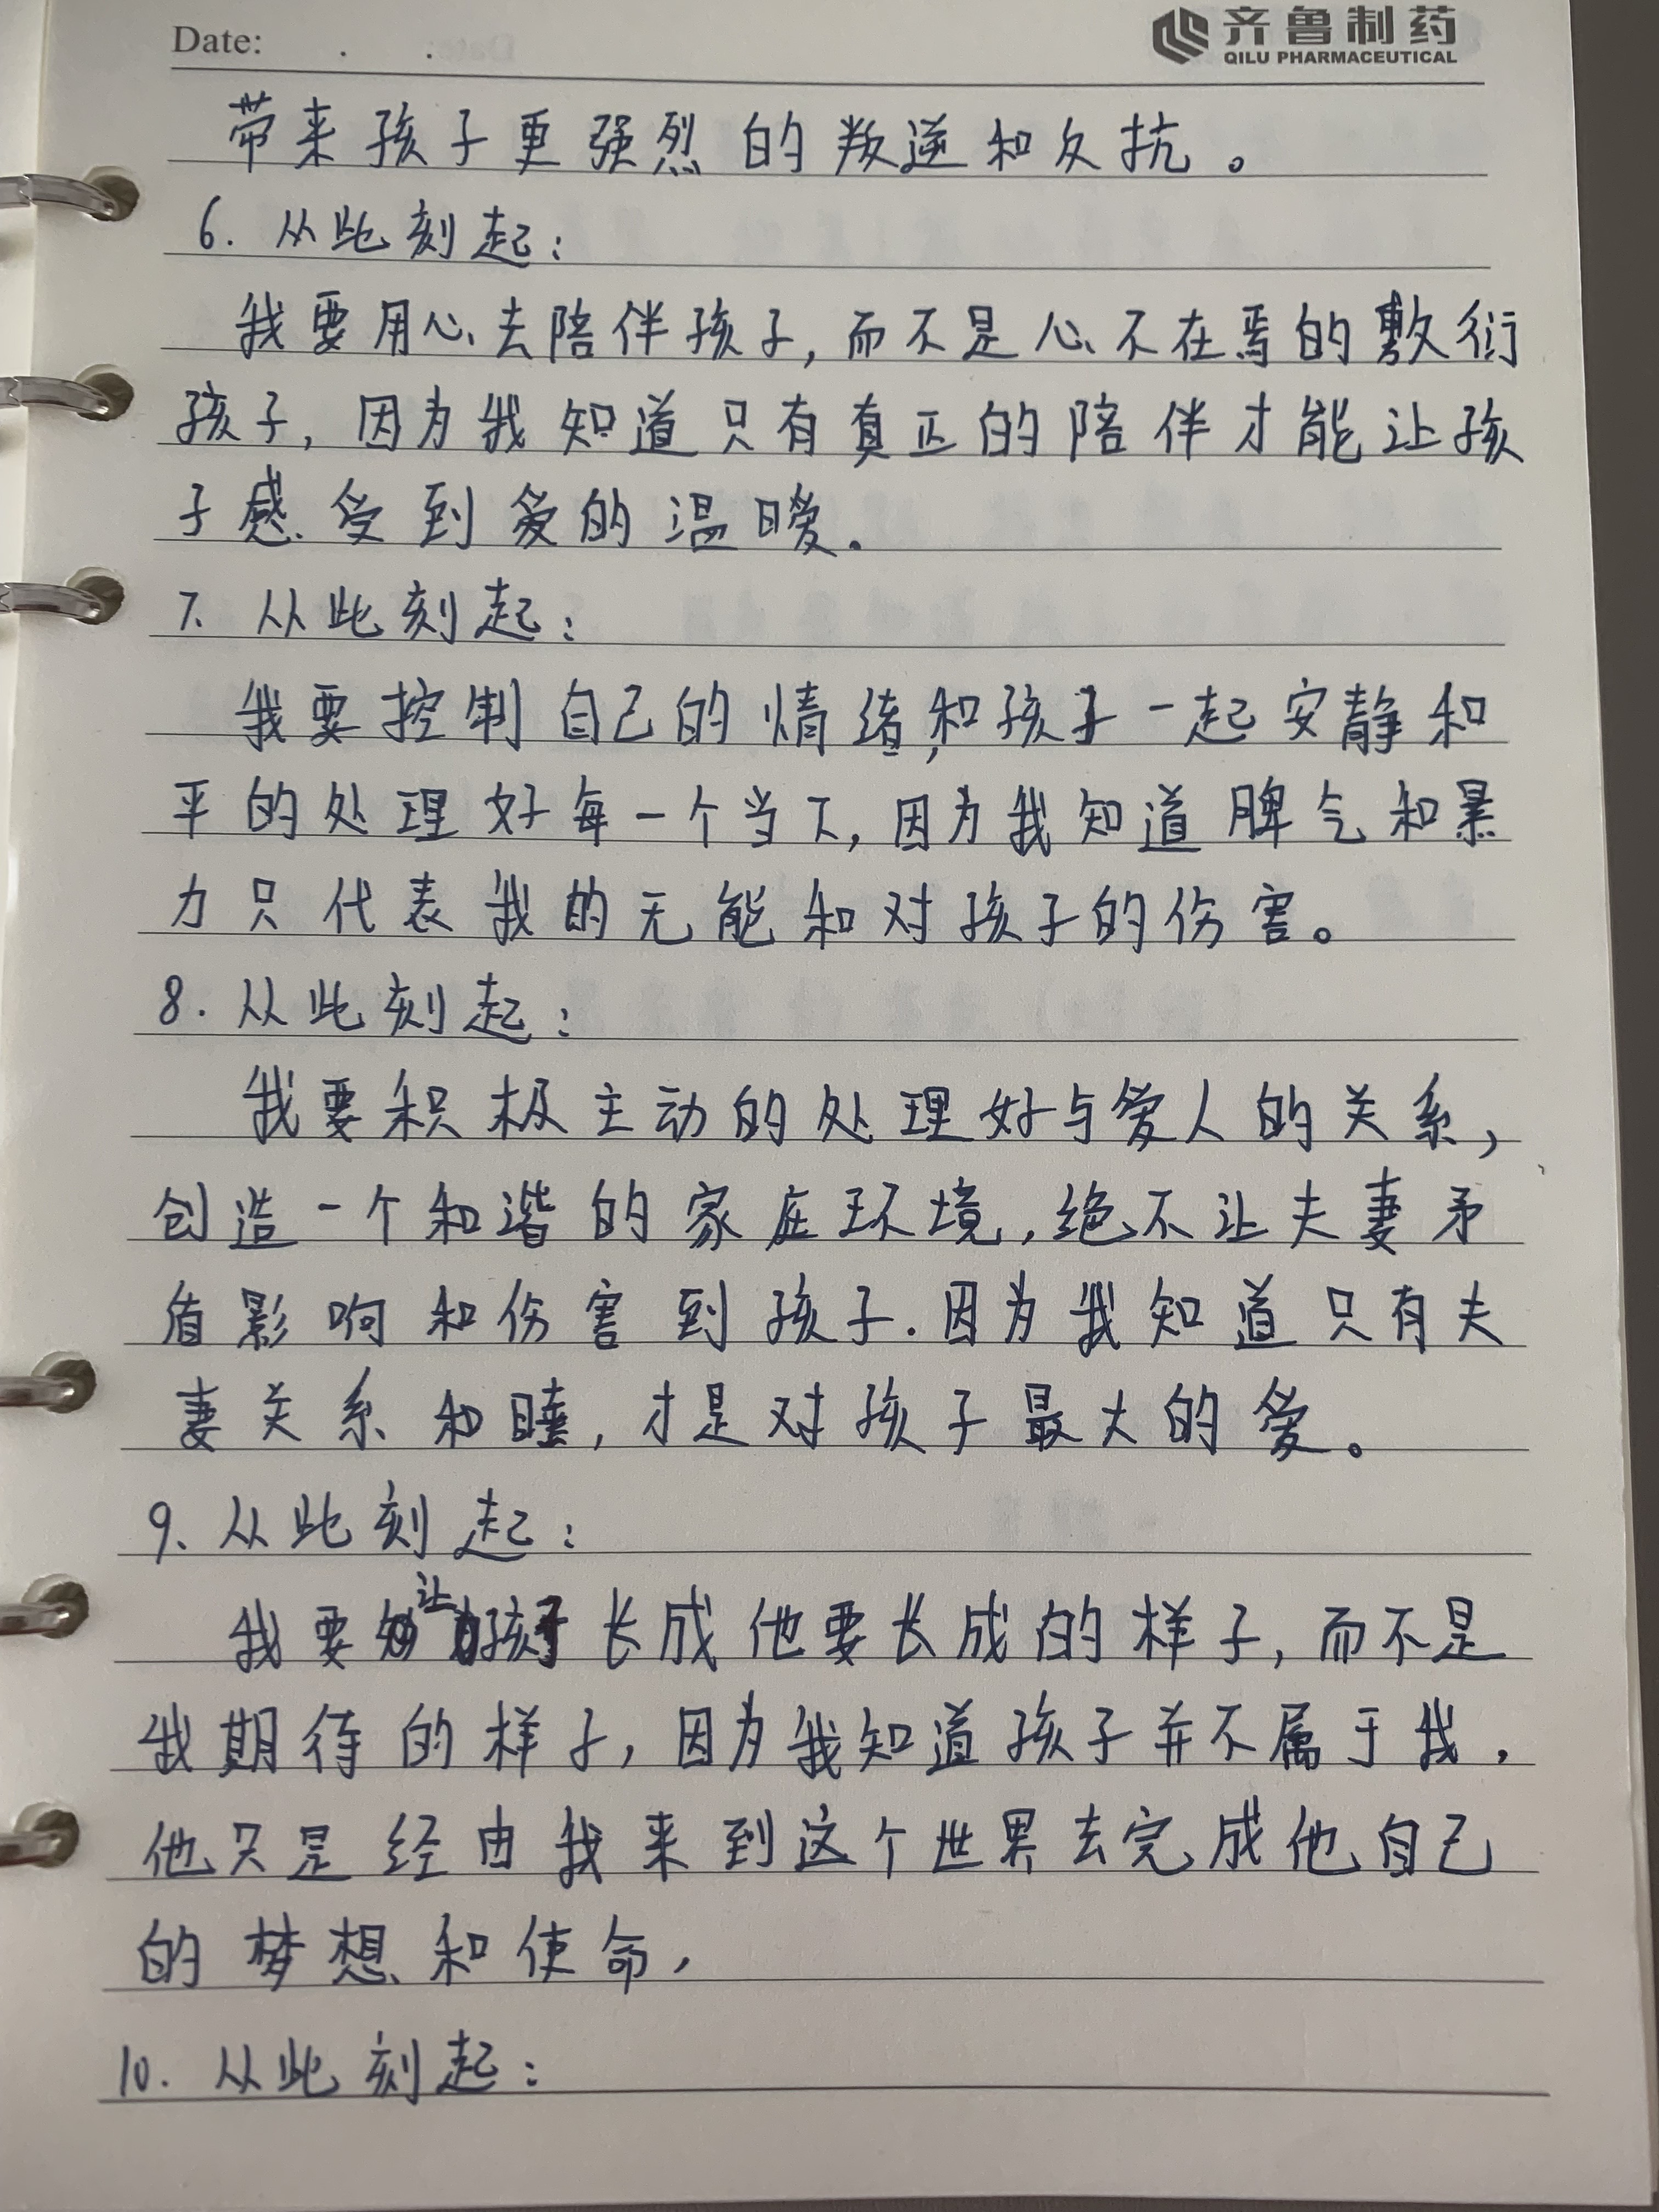 Date: . .
齐鲁制药
QILU PHARMACEUTICAL
带来孩子更强烈的叛逆和反抗。
6. 从此刻起：
我要用心去陪伴孩子，而不是心不在焉的敷衍
孩子，因为我知道只有真正的陪伴才能让孩
子感受到爱的温暖.
7. 从此刻起：
我要控制自己的情绪,和孩子一起安静和
平的处理好每一个当下，因为我知道脾气和暴
力只代表我的无能和对孩子的伤害。
8. 从此刻起：
我要积极主动的处理好与爱人的关系，
创造一个和谐的家庭环境，绝不让夫妻矛
盾影响和伤害到孩子.因为我知道只有夫
妻关系和睦，才是对孩子最大的爱。
9、从此刻起：
我要让孩子长成他要长成的样子，而不是
我期待的样子，因为我知道孩子并不属于我，
他只是经由我来到这个世界去完成他自己
的梦想和使命，
10. 从此刻起：